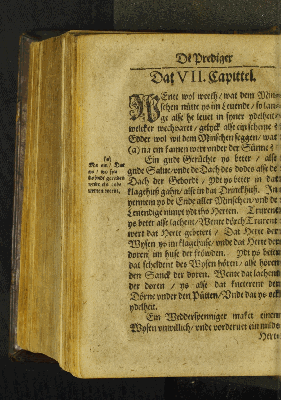 De Prediger
Dat VII. Capittel.
WEnte wol weeth / wat dem Min-
schen nütte ys im Leuende / so lan-
ge alse he leuet in syner ydelheit /
welcker wechvaret / gelyck alse ein scheme?
Edder wol wil dem Minschen seggen / wat
(a) na em kamen wert vnder der Sünne?
Ein gudt Gerüchte ys beter / alse
gude Salue / vnde de Dach des dodes alse de
Dach der Gebordt / Ydt ys beter in dat
klagehuß gahn / alse in dat Drinckhuß. In
yennem ys de Ende aller Minschen / vnd de
Leuendige nimpt ydt tho Herten. Trurent
ys beter alse lachent / Wente dörch Trurent
wert dat Herte gebetert / Dat Herte der
Wysen ys im klagehuse / vnde dat Herte der
doren im huse der fröuwden. Ydt ys beter
dat scheldent des Wysen hören / alse hören
den Sanck der doren. Wente dat lachent
der doren / ys alse dat kneterent der
Dörne vnder den Pütten / Vnde dat ys ock
ydelheit.
Ein Wedderspenniger maket einen
Wysen vnwillich / vnde vorderuet ein milde
Herte
(a)